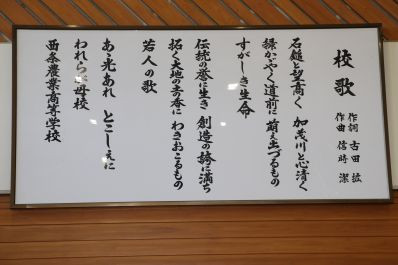 校歌
作詞 古田 拡
作曲 信時 潔
石鎚と望高く 加茂川と心清く
緑かゞやく道前に 萠え出づるもの
すがしき生命
伝統の誉に生き 創造の誇に満ち
拓く大地の土の香に わきおこるもの
若人の歌
あゝ光あれ とこしえに
われらが母校
西条農業高等学校